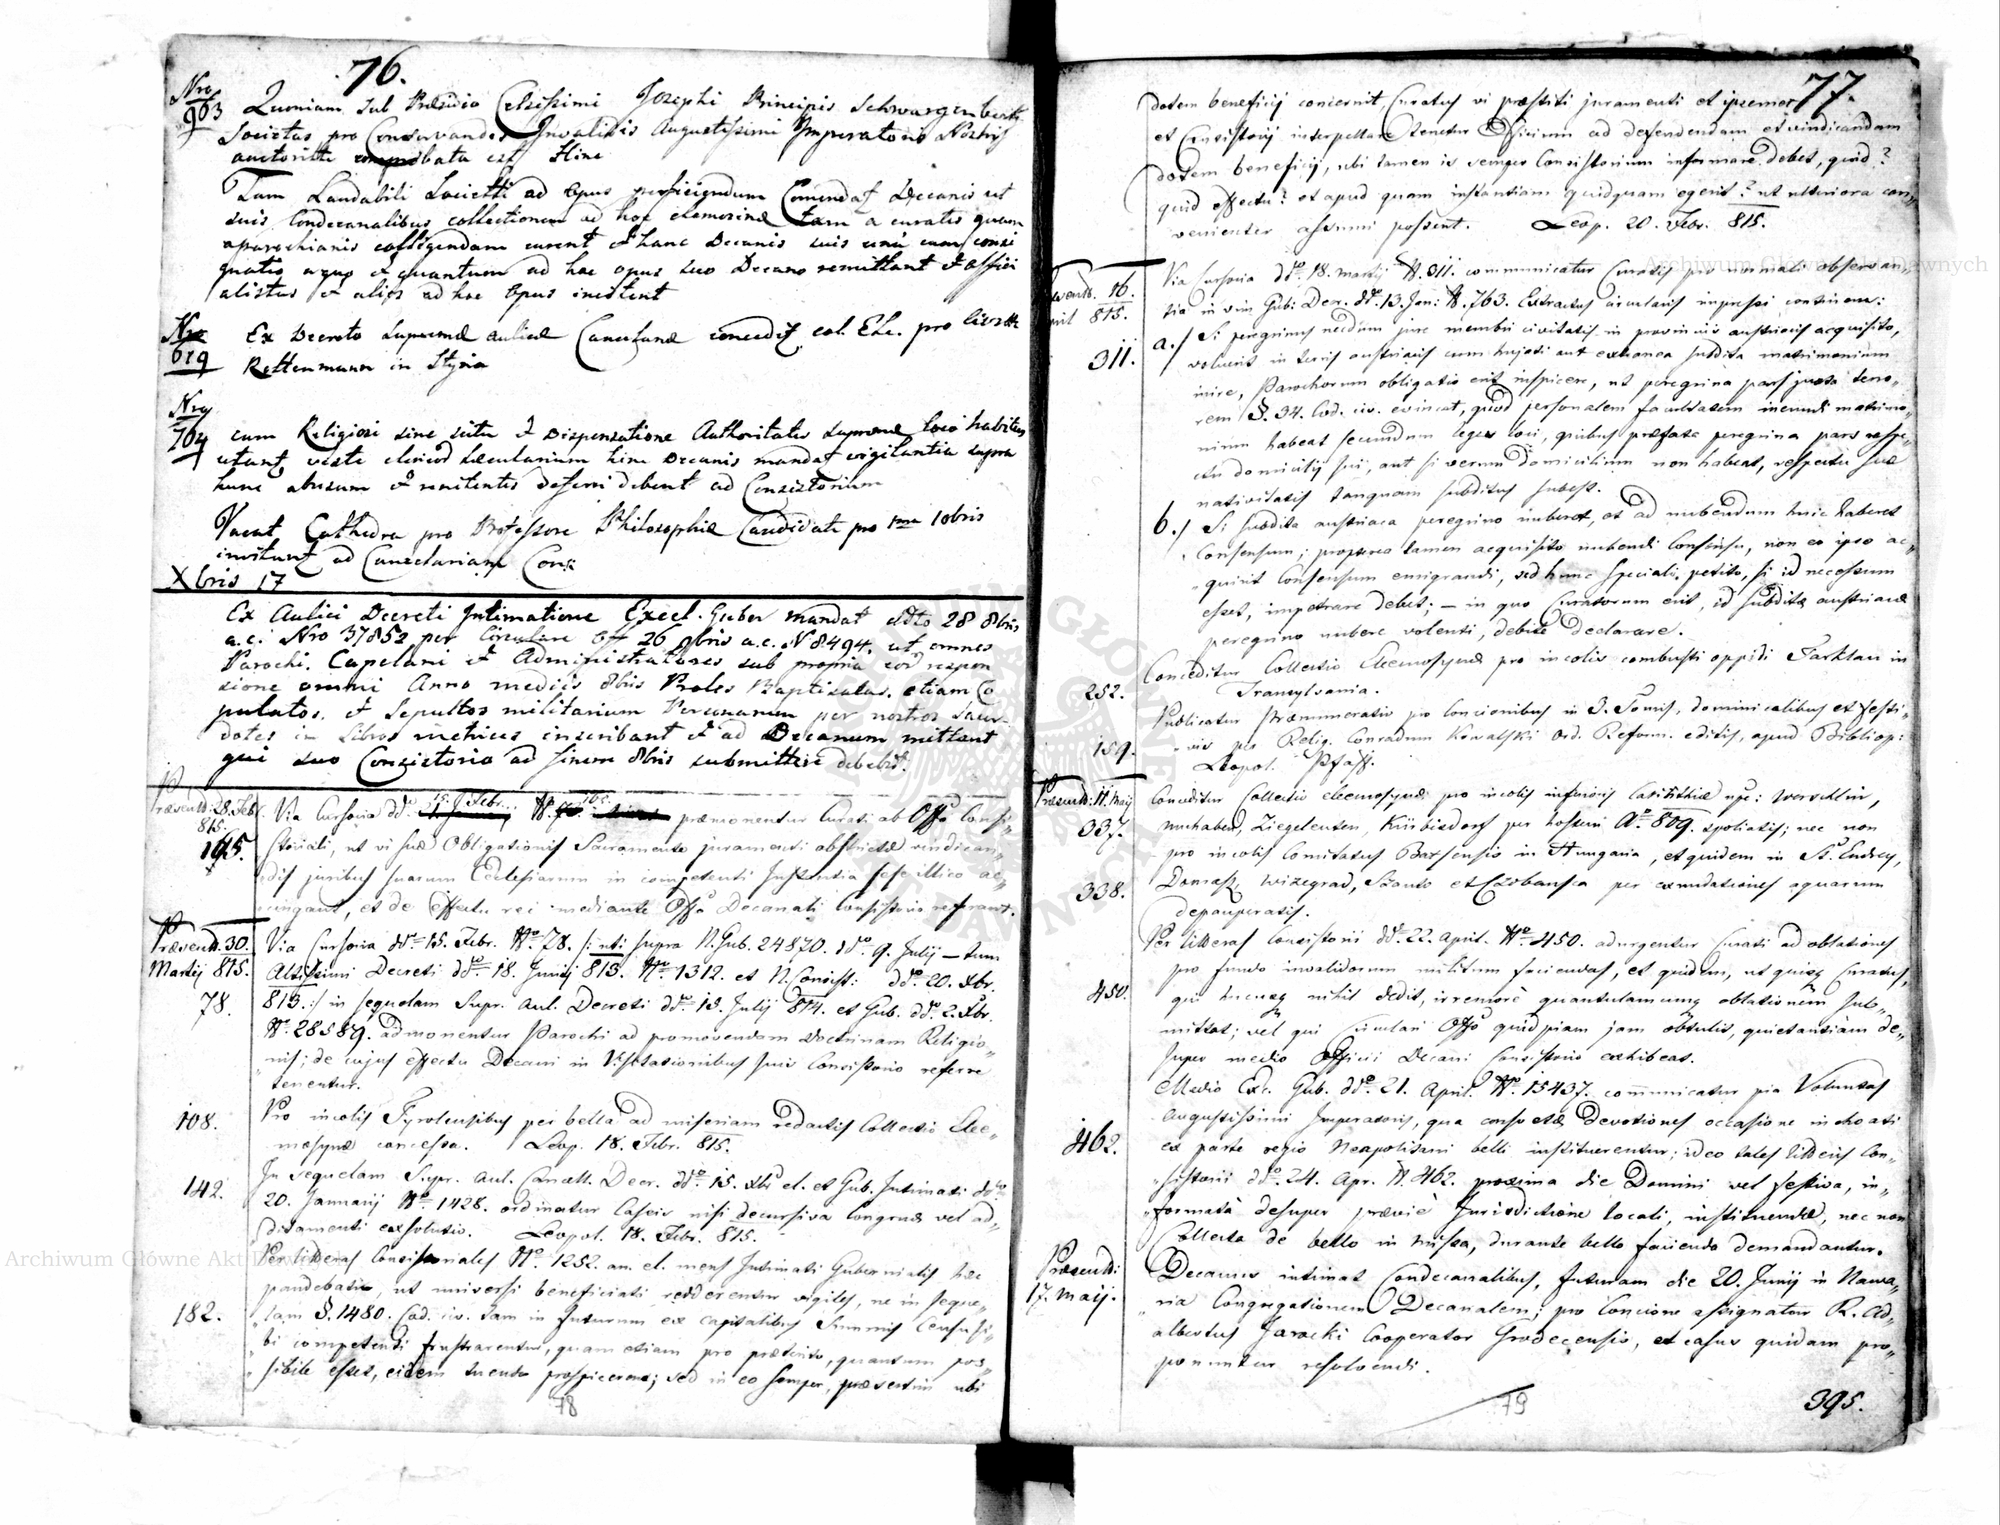 76.
Nro
963 Quoniam sub Præsidio Celsissimi Josephi Principis Schwarzenberk
Societas pro Conservandos Invalidis Augustissimi Imperatoris Nostris
auctoritte comprobata est Hinc
Tam Laudabili Societti ad opus perficiendum Comendat Decanis ut
suis Condecanalibus collectionem ad hoc elemosinæ tam a curatis quam
a parochianis colligendam curent et hanc Decanis suis una cum consi
gnatio a quo et quantum ad hac opus suo Decano remittant et offici
alistas et alios ad hoc opus invitent
Nro
619 Ex Decreto Supremæ aulicæ Cancelariæ concedit col. Ele. pro Civitte
Rottenmann in Styria
Nro
704 cum Religiosi sine scitu et Dispensatione Authoritatis Supremæ loco habitus
utunt, veste clericor sæcularium hinc Decanis mandat vigilantia supra
hunc abusum et renitentes deferri debent ad Consistorium
Vacat Cathedra pro Professore Philosophiæ Candidati pro 1ma 10bris
invitant ad Cancelariam Cons:
Xbris 17
Ex Aulici Decreti Intimatione Excel. Guber mandat ddto 28 8bris
a.c. Nro 37852 per Circulare 26 9bris a.c. N 8494. ut omnes
Parochi. Capelani et Administratores sub propria respon
sione omni Anno mediis 8bris Proles Baptisatas. etiam Co
pulatos. et Sepultos militarium Personarum per nostros Sacer
dotes in Libros metrices inscribant et ad Decanum mittant
qui suo Consistorio ad finem 8bris submittere debebit.
Præsent: 28. Feb.
815.
195. Via Cursoria ddo 15. Febr. No 195. præmonentur Curati ab Offo Consi„
storiali, ut vi suæ Obligationis Sacramento juramenti obstrictæ vindican„
dis juribus suarum Ecclesiarum in competenti Instantia sese illico ac„
cingant, et de Effectu rei mediante Offo Decanali Consistorio referant.
Præsent. 30.
Martij 815.
78. Via Cursoria ddo 15. Febr. No 78. /: uti supra N. Gub. 24870. ddo 9. Julij – tum
Altissimi Decreti ddo 18. Junij 813. No 1312. et N. Consist: ddo 20. Xbr.
813. :/ in sequelam Supr. Aul. Decreti ddo 13. Julij 814. et Gub. ddo 2. 7br.
No 28589. admonentur Parochi ad promovendam doctrinam Religio„
nis; de cujus effectu Decani in Visitationibus suis Consistorio referre
tenentur.
108. Pro incolis Tyrolensibus per bella ad miseriam redactis Collectio Elee„
mosynæ concessa. Leop. 18. Febr. 815.
142. In sequelam Supr. Aul. Cancell. Decr. ddo 15. Xbr el. et Gub. Intimati ddo
20. Januarij No 1428. ordinatur Cassis nisi decursiva Congruæ vel ad„
ditamenti exsolutio. Leopol. 18. Febr. 815.
182. Per litteras Consistoriales No 1252. an. el. mens Intimati Gubernialis hæc
pandebatur, ut universi beneficiati redderentur vigiles, ne in seque„
lam §. 1480. Cod. civ. tam in futurum ex capitalibus Summis Census si„
bi competendi frustrarentur, quam etiam pro præterito, quantum pos„
sibile esset, eidem tuendo prospicerent; sed in eo semper, præsertim ubi
78
77.
dotem beneficij concernit, Curatus vi præstiti juramenti et ipsemet
et Consistorij interpellare tenetur Officium ad defendendam et vindicandam
dotem beneficij, ubi tamen is semper Consistorium informare debet, quid?
quid effectu? et apud quam instantiam quidquam egerit? ut ulteriora con„
venienter assumi possent. Leop. 20. Febr. 815.
16.
815.
311. Via Cursoria ddo 18. martij N. 311. communicatur Curatis pro normali observan„
tia in vim Gub: Decr. ddo 13. Jan: N. 763. Extractus circularis impressi continens:
a./ Si peregrinus necdum jure membri civitatis in provinciis austriacis acquisito,
voluerit in terris austriacis cum hujati aut extranea subdita matrimonium
inire, Parochorum obligatio erit inspicere, ut peregrina pars juxta teno„
rem §. 34. Cod. civ. evincat, quod personalem facultatem ineundi matrimo„
nium habeat secundum leges loci, quibus præfata peregrina pars respe„
ctu domicilij sui, aut si verum domicilium non habeat, respectu suæ
nativitatis tanquam subditus subest.
b./ Si subdita austriaca peregrino nuberet, et ad nubendum huic haberet
Consensum; propterea tamen acquisito nubendi Consensu, non eo ipso ac„
quirit Consensum emigrandi, sed hunc speciali, petito, si id necessum
esset, impetrare debet; – in quo Curatorum erit, id subditæ austriacæ
peregrino nubere volenti, debite declarare.
252. Conceditur Collectio Eleemosynæ pro incolis combusti oppidi Tarktau in
Transylvania.
159. Publicatur Prænumeratio pro Concionibus in 3. Tomis, dominicalibus et festi„
vis per Relig. Conradum Kowalski Ord. Reform. editis, apud Bibliop:
Leopol. Pfaff.
Præsent. 11. Maij
337. Conceditur Collectio eleemosynæ pro incolis inferioris Carinthiæ
Ziegeleusen, Kürbisdorf per hostem Ao 809. spoliatis; nec non
338. pro incolis Comitatus Barsensis in Hungaria, et quidem in St. Endrey,
Domasz, Wizegrad, Szanto et Czobansca per exundationes aquarum
depauperatis.
450. Per litteras Consistorii ddo 22. April. No 450. adurgentur Curati ad oblationes
pro fundo invalidorum militum faciendas, et quidem, ut quisq Curatus,
qui hucusq nihil dedit, irremore quantulamcunq oblationem sub„
mittat; vel qui Circulari Offo quidpiam jam obtulit, quietantiam de„
super medio Officii Decani Consistorio exhibeat.
462. Medio Exc. Gub. ddo 21. April. No 15437. communicatur pia Voluntas
Augustissimi Imperatoris, qua consuetæ devotiones occasione inchoati
ex parte regio Neapolitani belli instituerentur; ideo tales litteris Con„
sistorii ddo 24. Apr. N. 462. proxima die Domini vel festiva, in„
formata desuper prævie Jurisdictione locali, instituendæ, nec non
Collecta de bello in missa, durante bello facienda demandantur.
Præsent:
17. Maij. Decanus intimat Condecanalibus, futuram die 20. Junij in Nawa„
ria Congregationem Decanalem; pro Concione assignatur R. Ad„
albertus Jarocki Cooperator Grodecensis, et casus quidam pro„
ponuntur resolvendi.
79
395.
Archiwum Główne Akt Dawnych